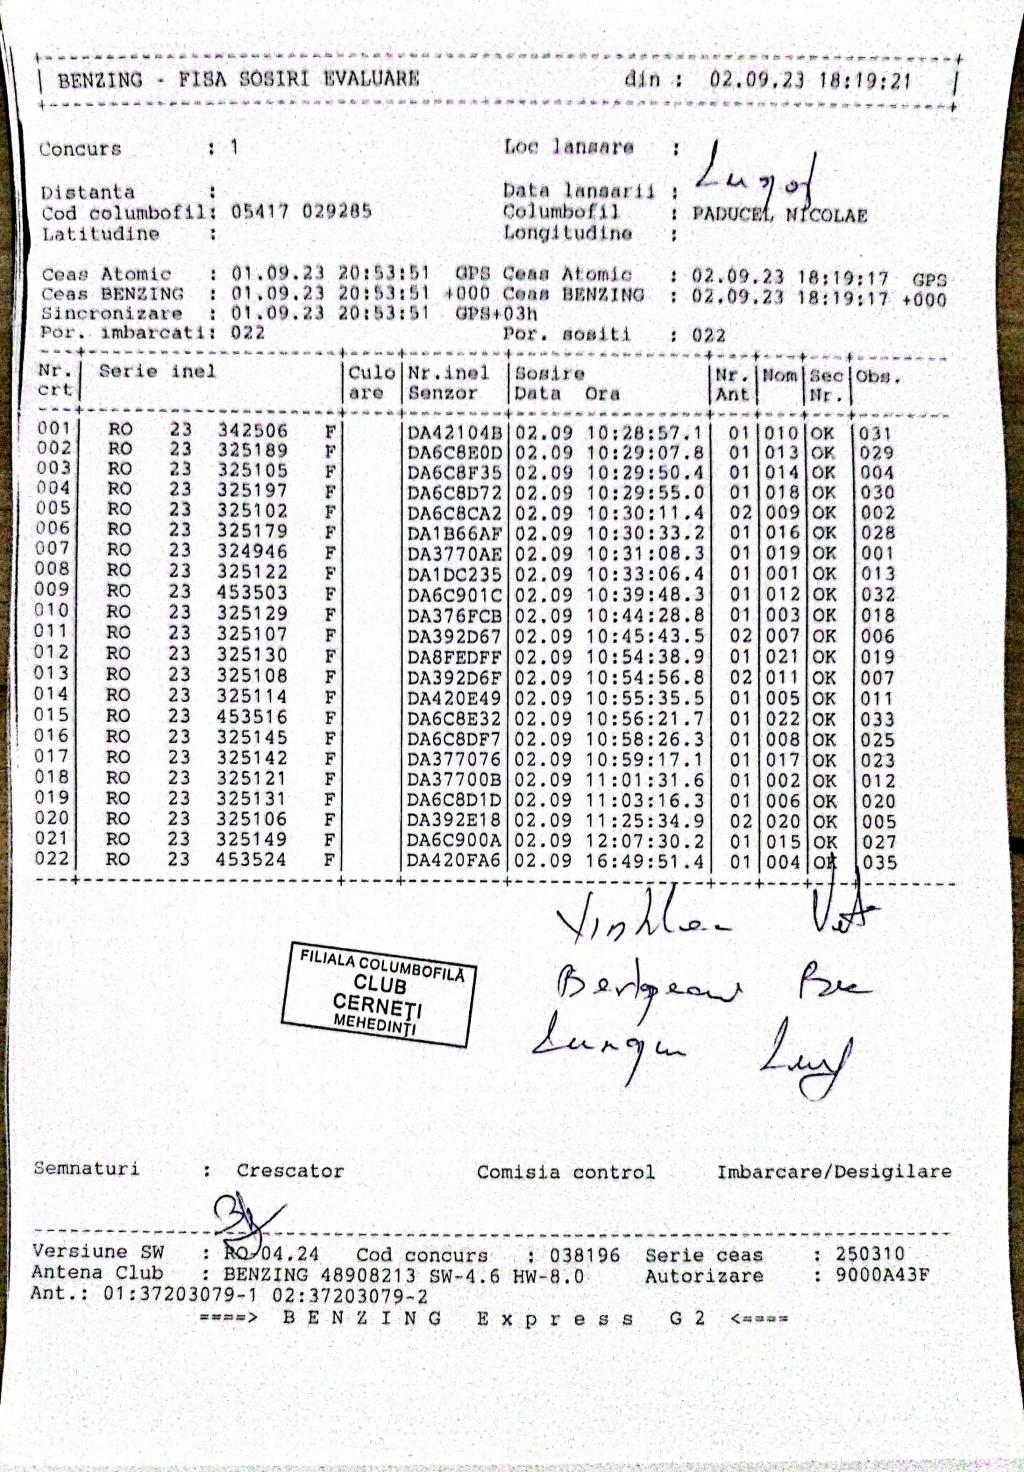 BENZING - FISA SOSIRI EVALUARE din : 02.09.23 18:19:21
Concurs : 1 Loc lansare : Lugoj
Distanta : Data lansarii :
Cod columbofil: 05417 029285 Columbofil : PADUCEL NICOLAE
Latitudine : Longitudine :
Ceas Atomic : 01.09.23 20:53:51 GPS Ceas Atomic : 02.09.23 18:19:17 GPS
Ceas BENZING : 01.09.23 20:53:51 +000 Ceas BENZING : 02.09.23 18:19:17 +000
Sincronizare : 01.09.23 20:53:51 GPS+03h
Por. imbarcati: 022 Por. sositi : 022
Nr. Serie inel Culo Nr.inel Sosire Nr. Nom Sec Obs.
crt are Senzor Data Ora Ant Nr.
001 RO 23 342506 F DA42104B 02.09 10:28:57.1 01 010 OK 031
002 RO 23 325189 F DA6C8E0D 02.09 10:29:07.8 01 013 OK 029
003 RO 23 325105 F DA6C8F35 02.09 10:29:50.4 01 014 OK 004
004 RO 23 325197 F DA6C8D72 02.09 10:29:55.0 01 018 OK 030
005 RO 23 325102 F DA6C8CA2 02.09 10:30:11.4 02 009 OK 002
006 RO 23 325179 F DA1B66AF 02.09 10:30:33.2 01 016 OK 028
007 RO 23 324946 F DA3770AE 02.09 10:31:08.3 01 019 OK 001
008 RO 23 325122 F DA1DC235 02.09 10:33:06.4 01 001 OK 013
009 RO 23 453503 F DA6C901C 02.09 10:39:48.3 01 012 OK 032
010 RO 23 325129 F DA376FCB 02.09 10:44:28.8 01 003 OK 018
011 RO 23 325107 F DA392D67 02.09 10:45:43.5 02 007 OK 006
012 RO 23 325130 F DA8FEDFF 02.09 10:54:38.9 01 021 OK 019
013 RO 23 325108 F DA392D6F 02.09 10:54:56.8 02 011 OK 007
014 RO 23 325114 F DA420E49 02.09 10:55:35.5 01 005 OK 011
015 RO 23 453516 F DA6C8E32 02.09 10:56:21.7 01 022 OK 033
016 RO 23 325145 F DA6C8DF7 02.09 10:58:26.3 01 008 OK 025
017 RO 23 325142 F DA377076 02.09 10:59:17.1 01 017 OK 023
018 RO 23 325121 F DA37700B 02.09 11:01:31.6 01 002 OK 012
019 RO 23 325131 F DA6C8D1D 02.09 11:03:16.3 01 006 OK 020
020 RO 23 325106 F DA392E18 02.09 11:25:34.9 02 020 OK 005
021 RO 23 325149 F DA6C900A 02.09 12:07:30.2 01 015 OK 027
022 RO 23 453524 F DA420FA6 02.09 16:49:51.4 01 004 OK 035
FILIALA COLUMBOFILĂ
CLUB
CERNEȚI
MEHEDINȚI
Semnaturi : Crescator Comisia control Imbarcare/Desigilare
Versiune SW : RO-04.24 Cod concurs : 038196 Serie ceas : 250310
Antena Club : BENZING 48908213 SW-4.6 HW-8.0 Autorizare : 9000A43F
Ant.: 01:37203079-1 02:37203079-2
====> B E N Z I N G E x p r e s s G 2 <====